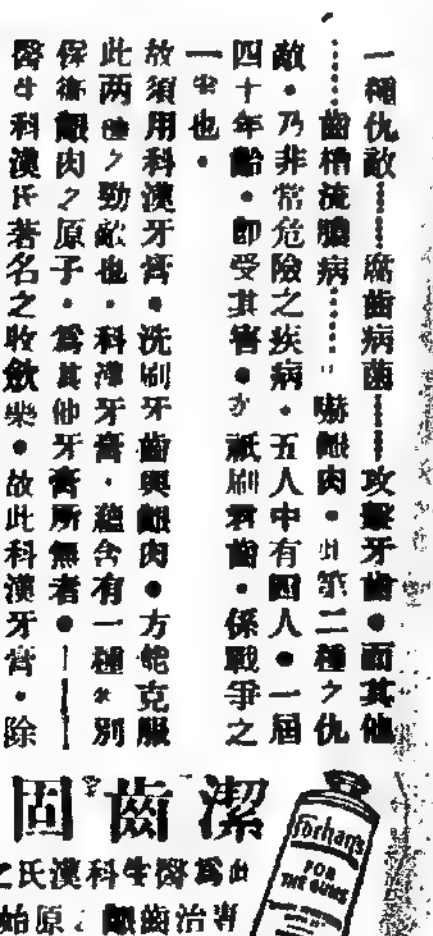 一種仇敵……腐齒病菌……攻擊牙齒・而其他
……齒槽流膿病……嚇齦肉・此第二種之仇
敵・乃非常危險之疾病・五人中有四人・一屆
四十年齡・即受其害・祇刷君齒・係戰爭之
一半也・
故須用科漢牙膏・洗刷牙齒與齦肉・方能克服
此两種之勁敵也・科漢牙膏・蘊含有一種特別
保衛齦肉之原子・為其他牙膏所無者・——
醫生科漢氏著名之收斂藥・故此科漢牙膏・除
潔齒固
Forhan's
FOR
THE GUMS
此為醫生科漢氏之
專治齒齦之原始